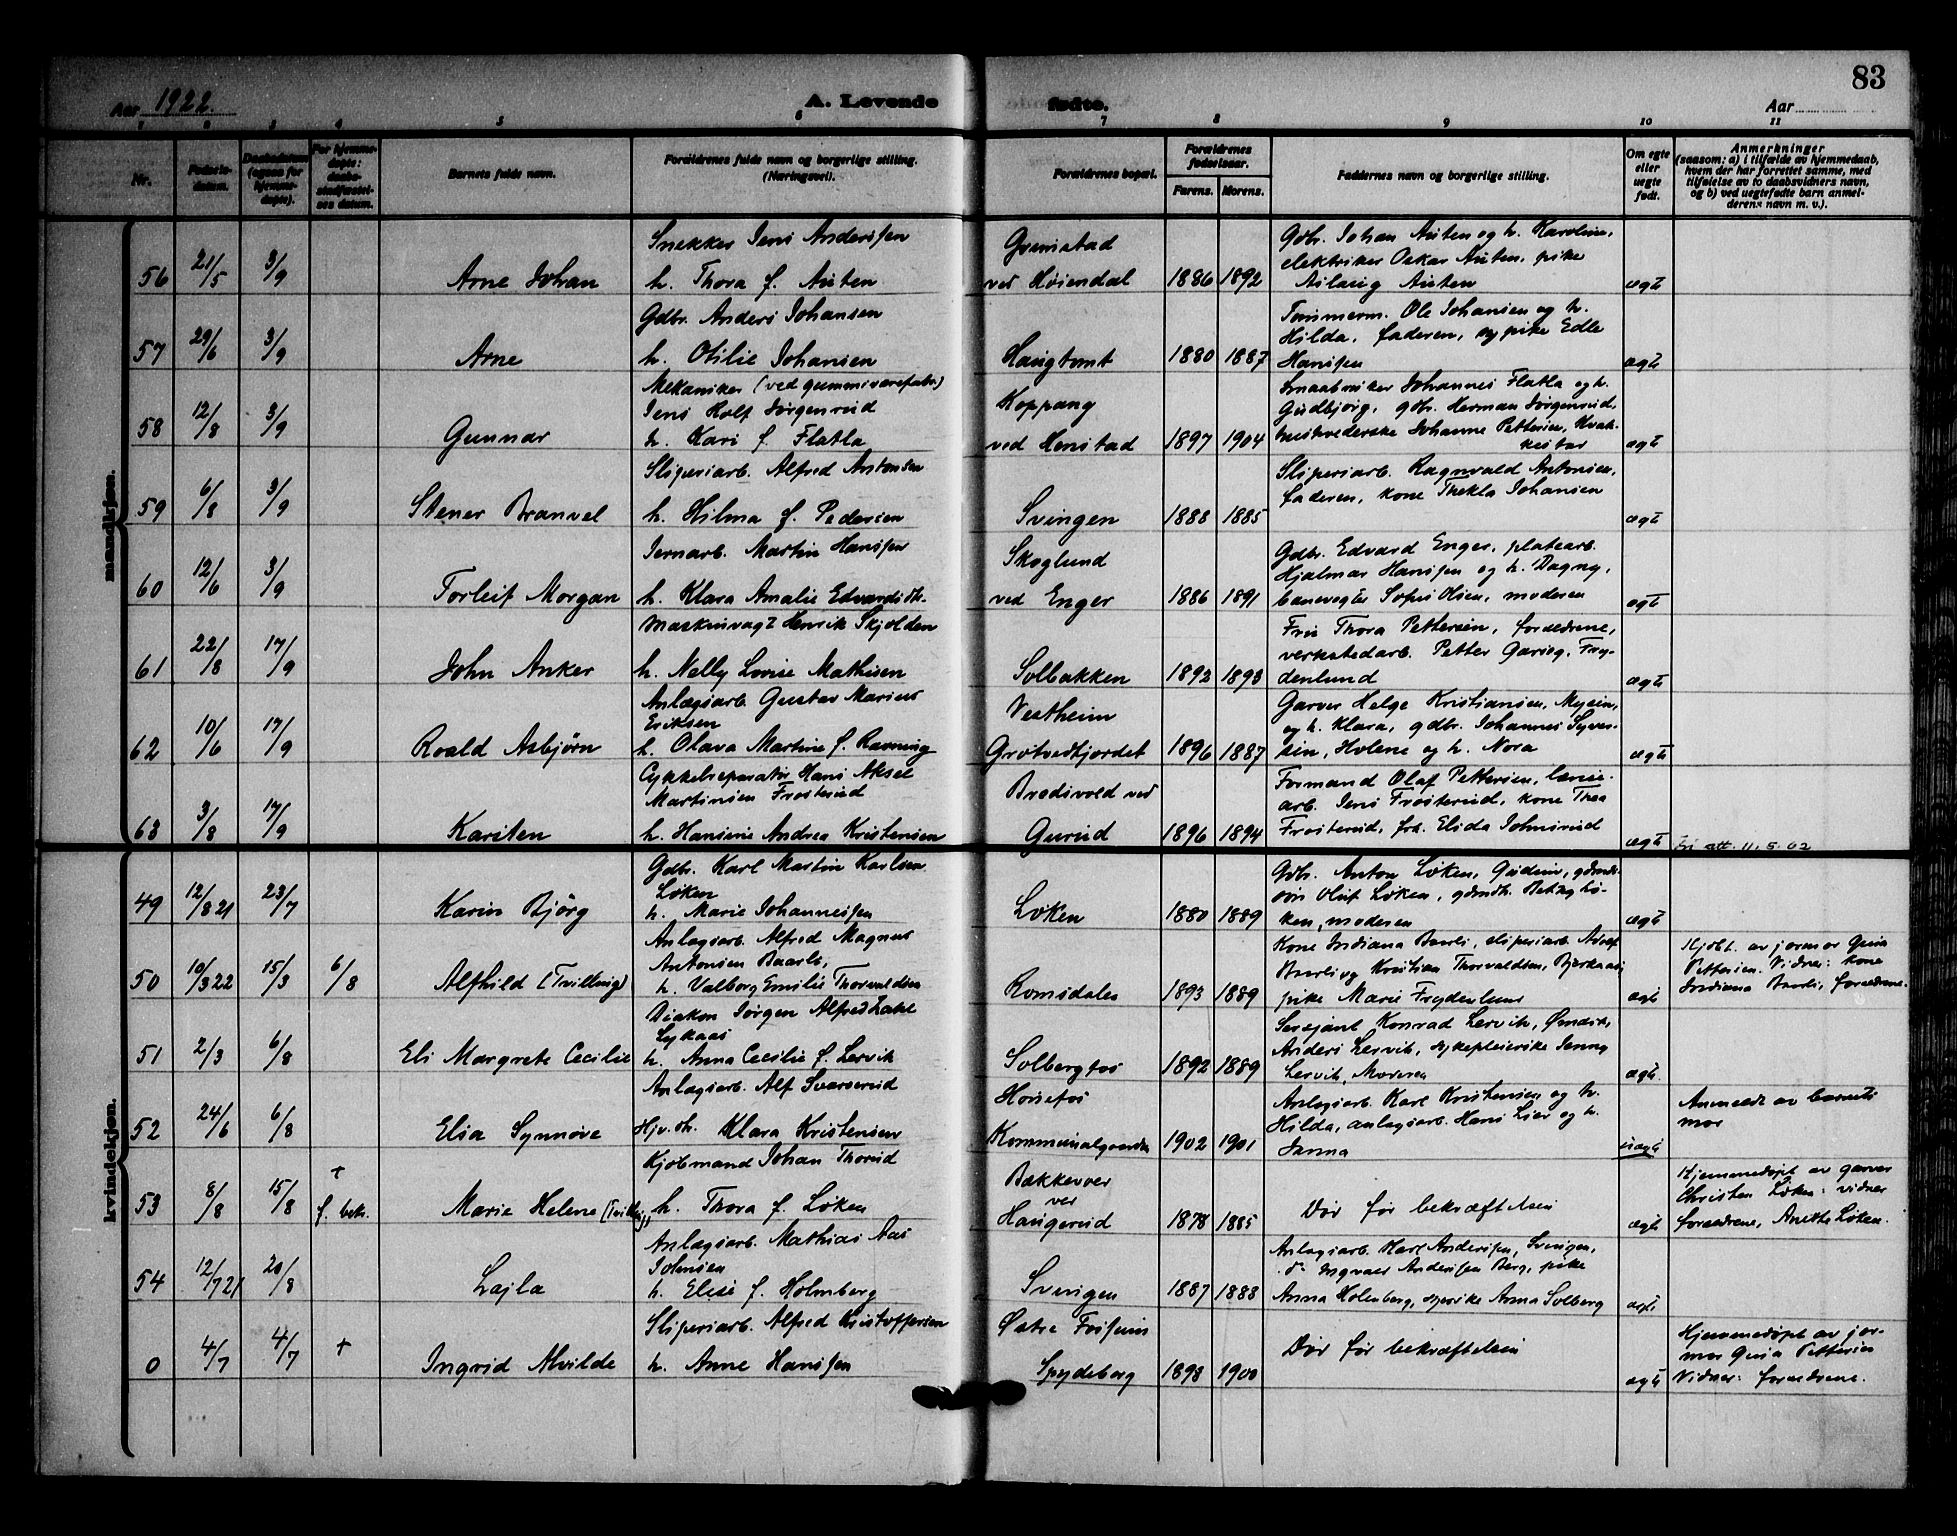 83
Aar 1922.
A. Levende
fødte.
Aar
1 2 3 4 5 6 7 8 9 10 11
Nr.
Fødsels-
datum.
Daabsdatum
(ogsaa for
hjemme-
døpte).
For hjemme-
døpte:
daabs-
stadfæstel-
ses datum.
Barnets fulde navn.
Forældrenes fulde navn og borgerlige stilling.
(Næringsvei).
Forældrenes bopæl.
Forældrenes
fødselsaar.
Farens. Morens.
Faddernes navn og borgerlige stilling.
Om egte
eller
uegte
født.
Anmerkninger
(saasom: a) i tilfælde av hjemmedaab,
hvem der har forrettet samme, med
tilføielse av to daabsvidners navn,
og b) ved uegtefødte barn anmel-
derens navn m. v.).
mandkjøn.
56 21/5 3/9 Arne Johan
Snekker Jens Anderssen
h. Thora f. Auten
Grimstad
ved Høiendal 1886 1892
Gdb. Johan Auten og h. Karoline,
elektriker Oskar Auten, pike
Aslaug Auten
ægte
57 29/6 3/9 Arne
Gdbr. Anders Johansen
h. Otilie Johansen
Haugtomt 1880 1887
Tømmerm. Ole Johansen og h.
Hilda, faderen, og pike Edle
Hanssen
ægte
58 12/8 3/9 Gunnar
Mekaniker (ved gummivarefabr.)
Jens Rolf Jørgenrud
h. Kari f. Flatla
Koppang
ved Henstad 1897 1904
Smaabruker Johannes Flatla og h.
Gudbjørg, gdbr. Herman Jørgenrud,
Johanne Pettersen, Kvak-
kestad
ægte
59 6/8 3/9 Stener Branvel
Sliperiarb. Alfred Antonsen
h. Hilma f. Pedersen
Svingen 1888 1885
Sliperiarb. Ragnvald Antonsen,
faderen, kone Thekla Johansen
ægte
60 12/6 3/9 Torleif Morgan
Jernarb. Martin Hanssen
h. Klara Amalie Edvardsdtr.
Skoglund
ved Enger 1886 1891
Gdbr. Edvard Enger, platearb.
Hjalmar Hanssen og h. Dagny,
banevogter Sofus Olsen, moderen
ægte
61 22/8 17/9 John Anker
Maskinvagt Henrik Skjolden
h. Nelly Lovise Mathisen
Solbakken 1892 1893
Fru Thora Pettersen, forældrene,
verkstedarb. Petter Fry-
denlund
ægte
62 10/6 17/9 Roald Asbjørn
Anlægsarb. Gustav Marius
Eriksen
h. Olava Martine f. Ravning
Vestheim
Grøtvedtjordet 1896 1887
Garver Helge Kristiansen, Mysen,
og h. Klara, gdbr. Johannes Syver-
sen, Holene og h. Nora
ægte
63 3/8 17/9 Karsten
Cykkelreparatør Hans Aksel
Martinsen Frosterud
h. Hansine Andrea Kristensen
Bredsvold ved
Gurud 1896 1894
Formand Olaf Pettersen, læsse-
arb. Jens Frosterud, kone Thea
Frosterud, frk. Elida Johnsrud
ægte
att. 11.5.62
kvindekjøn.
49 12/8 21 23/7 Karin Bjørg
Gdb. Karl Martin Karlsen
Løken
h. Marie Johannessen
Løken 1880 1889
Gdb. Anton Løken, Gudim, gdmds-
søn Oluf Løken, gdmdtr. Betzy Lø-
ken, moderen
ægte
50 10/3 22 15/3 6/8 Alfhild (Tvilling)
Anlægsarb. Alfred Magnus
Antonsen Baarli,
h. Valborg Emilie Thorvaldsen
Romsdalen 1893 1889
Kone Indiana Baarli, sliperiarb. Adolf
Baarli og Kristian Thorvaldsen, Bjerkaas
pike Marie Frydenlund
ægte
Hjdøbt. av jormor Gusta
Pettersen. Vidner: kone
Indiana Baarli, forældrene.
51 2/3 6/8 Eli Margrete Cecilie
Diakon Jørgen Alfred Lake
Lykaas
h. Anna Cecilie f. Lervik
Solbergfos 1892 1889
Sersjant Konrad Lervik,
Anders Lervik, sykepleierske Jenny
Lervik, Moderen
ægte.
52 24/6 6/8 Elsa Synnøve
Anlægsarb. Alf Svarverud
Hjv. dtr. Klara Kristensen
Honefos
Kommunalgaarden 1902 1901
Anlægsarb. Karl Kristensen og h.
Hilda, anlægsarb. Hans Lier og h.
Janna
uægte
Anmeldt av barnets
mor
53 8/8 15/8 +
f. bek. Marie Helene (Tvilling)
Kjøbmand Johan Thorud
h. Thora f. Løken
Bakkever
ved
Haugerud 1878 1885
Død før bekræftelsen
ægte
Hjemmedøpt av garver
Christen Løken: vidner
forældrene, Anette Løken.
54 12/7 21 20/8 Lajla
Anlægsarb. Mathias Aas
Johnsen
h. Elise f. Holmberg
Svingen 1887 1888
Anlægsarb. Karl Anderssen, Svingen,
do Ingvald Anderssen Berg, pike
Anna Holmberg, Anna Solberg
ægte
0 4/7 4/7 + Ingrid Alvilde
Sliperiarb. Alfred Kristoffersen
h. Anne Hanssen
Østre Fossum
Spydeberg 1898 1900
Død før bekræftelsen
ægte
Hjemmedøpt av jor-
mor Gusta Pettersen
Vidner: forældrene.